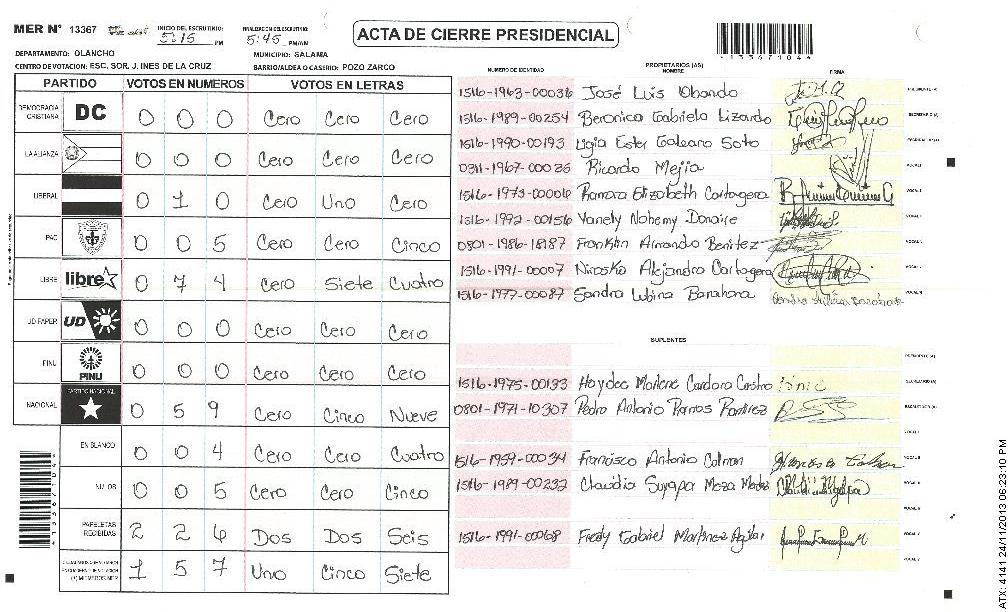 MER Nº 13367
INICIO DEL ESCRUTINIO: 5:15 PM
FINALIZACION DEL ESCRUTINIO: 5:45 PM/AM
ACTA DE CIERRE PRESIDENCIAL
*13367104*
DEPARTAMENTO: OLANCHO
MUNICIPIO: SALAMA
CENTRO DE VOTACION: ESC. SOR. J. INES DE LA CRUZ
BARRIO/ALDEA O CASERIO: POZO ZARCO
PARTIDO VOTOS EN NUMEROS VOTOS EN LETRAS
DEMOCRACIA CRISTIANA DC 0 0 0 Cero Cero Cero
LA ALIANZA 0 0 0 Cero Cero Cero
LIBERAL 0 1 0 Cero Uno Cero
PAC 0 0 5 Cero Cero Cinco
LIBRE libre 0 7 4 Cero Siete Cuatro
UD FAPER UD 0 0 0 Cero Cero Cero
PINU PINU 0 0 0 Cero Cero Cero
NACIONAL PARTIDO NACIONAL 0 5 9 Cero Cinco Nueve
EN BLANCO 0 0 4 Cero Cero Cuatro
NULOS 0 0 5 Cero Cero Cinco
PAPELETAS RECIBIDAS 2 2 6 Dos Dos Seis
(+) MIEMBROS MER 1 5 7 Uno Cinco Siete
PROPIETARIOS (AS)
NUMERO DE IDENTIDAD NOMBRE FIRMA
1516-1963-00036 José Luis Obando PRESIDENTE (A)
1516-1989-00254 Beronica Gabriela Lizardo SECRETARIO (A)
1516-1990-00193 Ligia Ester Galeano Soto
0311-1967-00026 Ricardo Mejia VOCAL I
1516-1973-00006 Ramona Elizabeth Cartagena
1516-1992-00156 Yanely Nohemy Donaire
0801-1986-18187 Franklin Armando Benitez
1516-1991-00007 Nirosko Alejandro Cartagena
1516-1977-00087 Sandra Lubina Barahona
SUPLENTES
PRESIDENTE (A)
1516-1975-00193 Haydee Marlene Cardona Castro SECRETARIO (A)
0801-1971-10307 Pedro Antonio Ramos Ramirez
1516-1959-00034 Francisco Antonio Colman
1516-1989-00232 Claudia Suyapa Meza
1516-1991-00068 Fredy Gabriel Martinez Aguilar
ATX: 4141 24/11/2013 06:23:10 PM